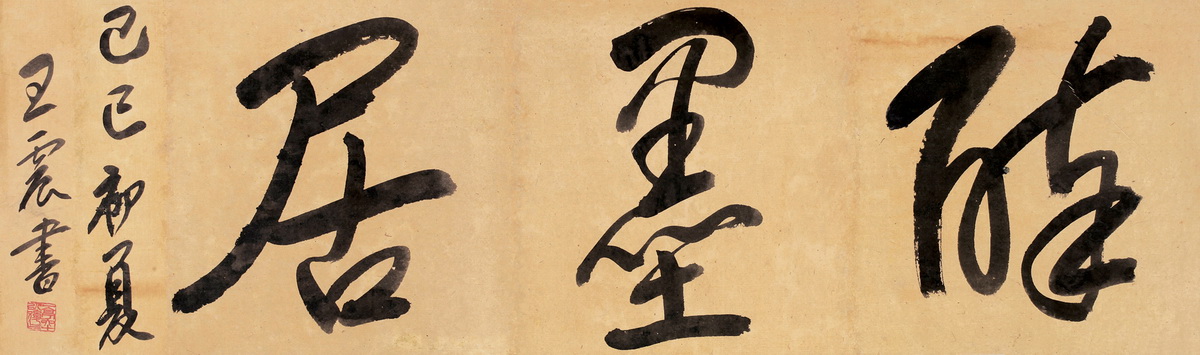 醉墨居
己巳初夏
王震書